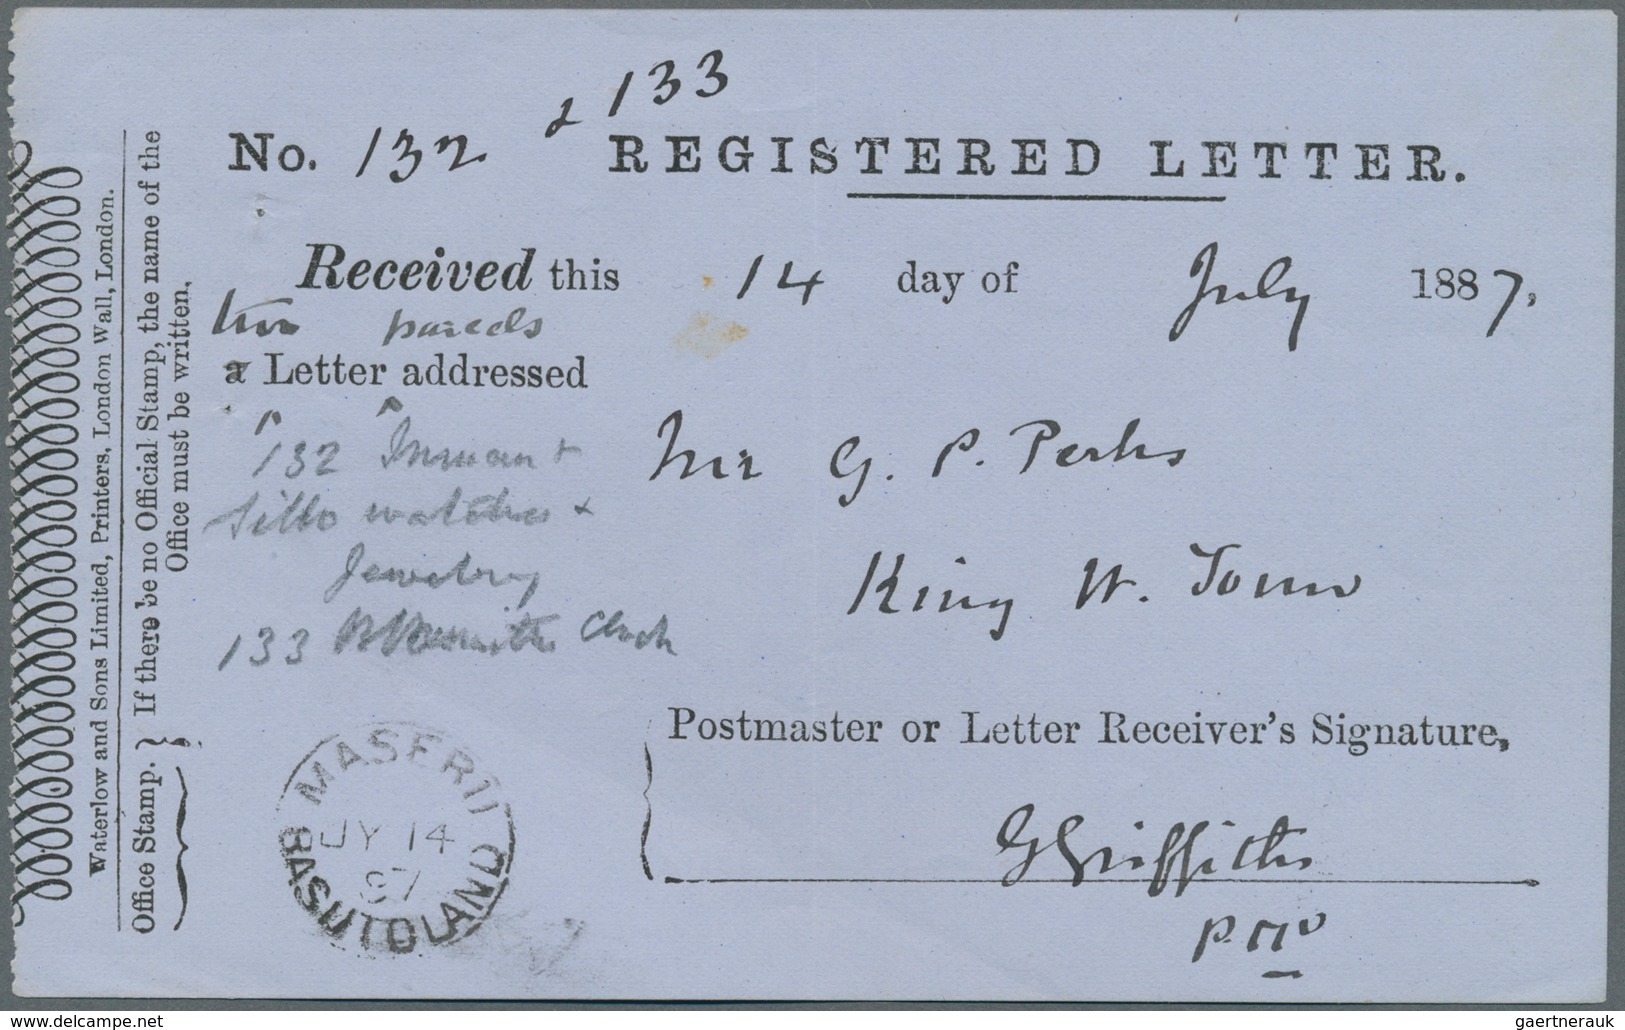 & 133
No. 132 REGISTERED LETTER.
Received this 14 day of July 1887,
two parcels
a Letter addressed
132
watches &
Jewelery
133 Clock
Mr G. P. Perks
King W. Town
Postmaster or Letter Receiver's Signature,
G Griffiths
P.Mr
MASERU
JY 14
87
BASUTOLAND
Office Stamp. } If there be no Official Stamp, the name of the
Office must be written.
Waterlow and Sons Limited, Printers, London Wall, London.
www.delcampe.net
gaertnerauk